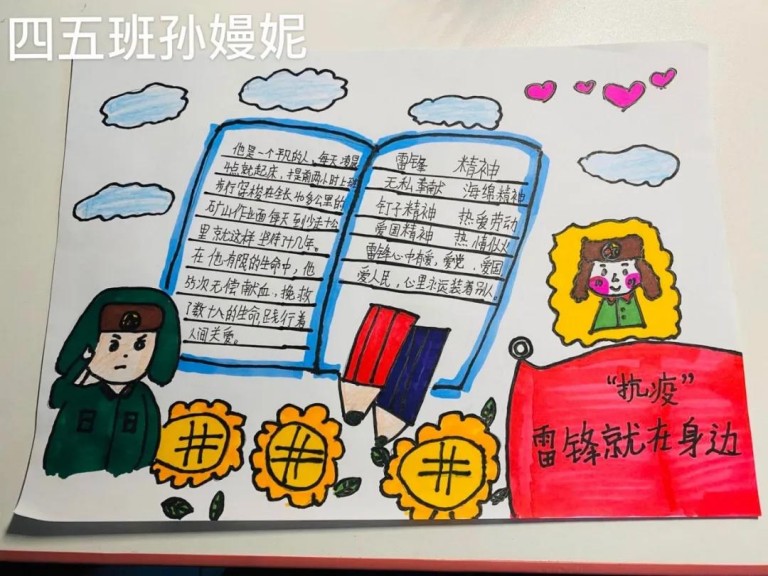 四五班孙嫚妮
他是一个平凡的人、每天凌晨
4点就起床，提前两小时上班
步行穿梭在全长40多公里的
矿山作业面每天至少走十公
里就这样坚持了十几年。
在他有限的生命中，他
55次无偿献血，挽救
了数十人的生命，践行着
人间关爱。
雷锋 精神
无私奉献 海绵精神
钉子精神 热爱劳动
爱国精神 热情似火
雷锋心中有爱，爱党，爱国
爱人民，心里永远装着别人。
“抗疫”
雷锋就在身边